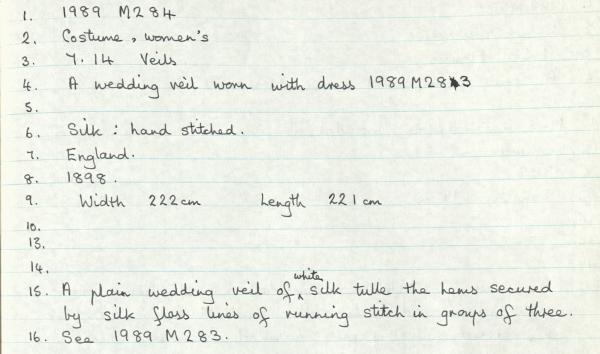 1. 1989 M284
2. Costume, women's
3. 7.14 Veils
4. A wedding veil worn with dress 1989M283
5.
6. Silk : hand stitched.
7. England.
8. 1898.
9. Width 222cm Length 221cm
10.
13.
14.
15. A plain wedding veil of white silk tulle the hems secured
by silk floss lines of running stitch in groups of three.
16. See 1989 M283.